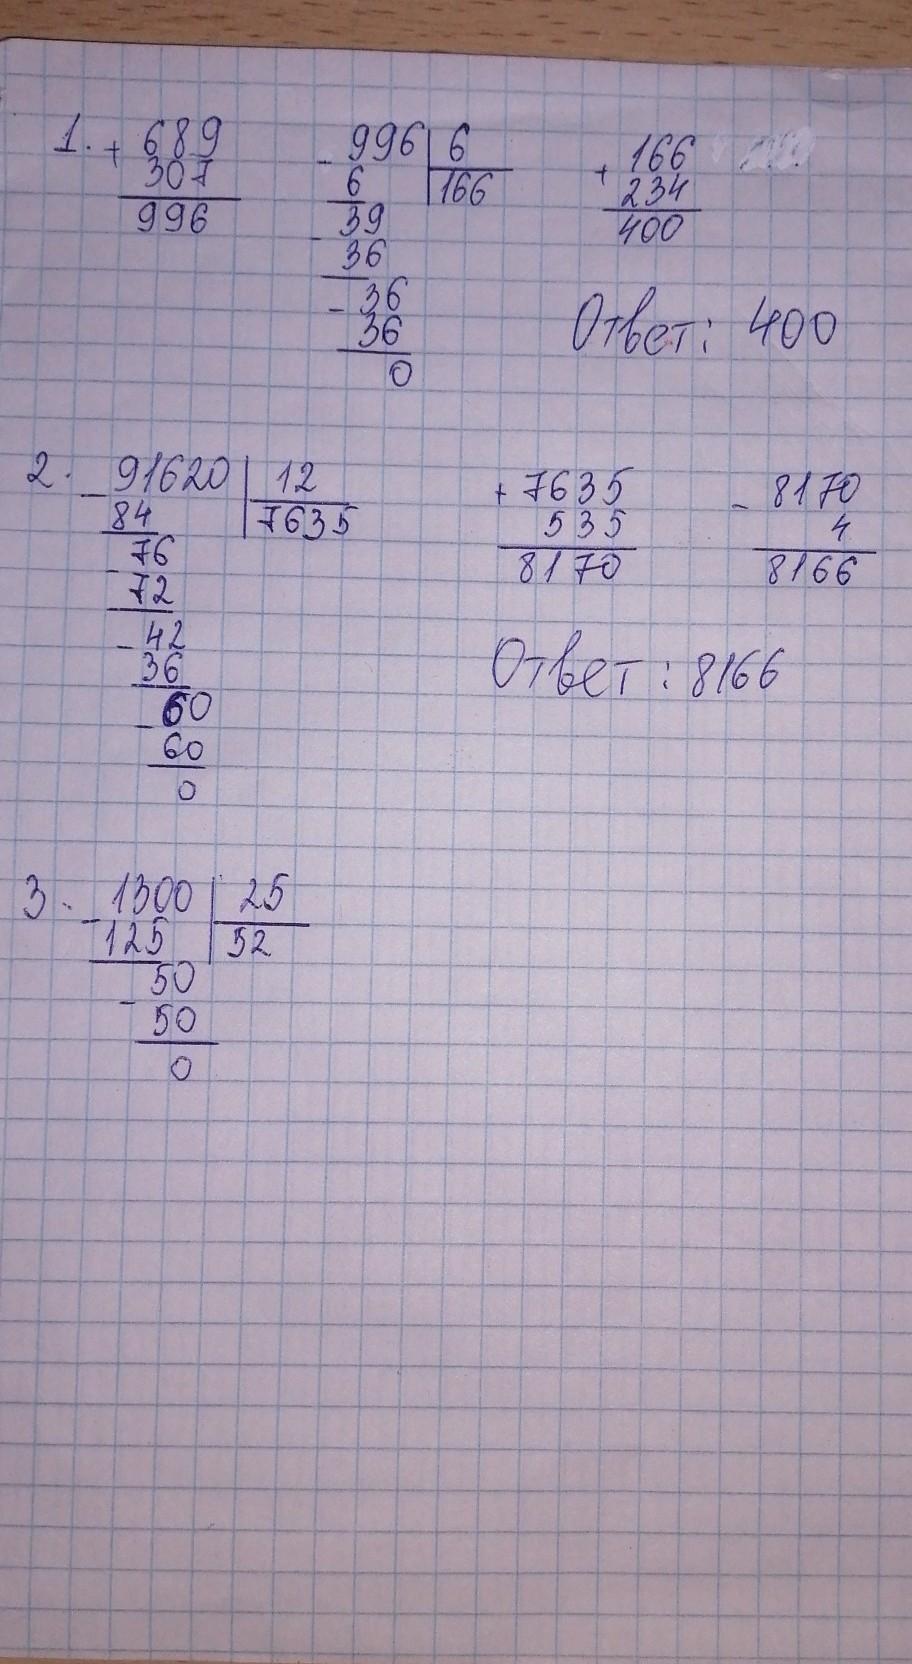 1. + 689
307
996
- 996 | 6
6 | 166
- 39
36
- 36
36
0
+ 166
234
400
Ответ: 400
2. - 91620 | 12
84 | 7635
- 76
72
- 42
36
- 60
60
0
+ 7635
535
8170
- 8170
4
8166
Ответ: 8166
3. - 1300 | 25
125 | 52
- 50
50
0